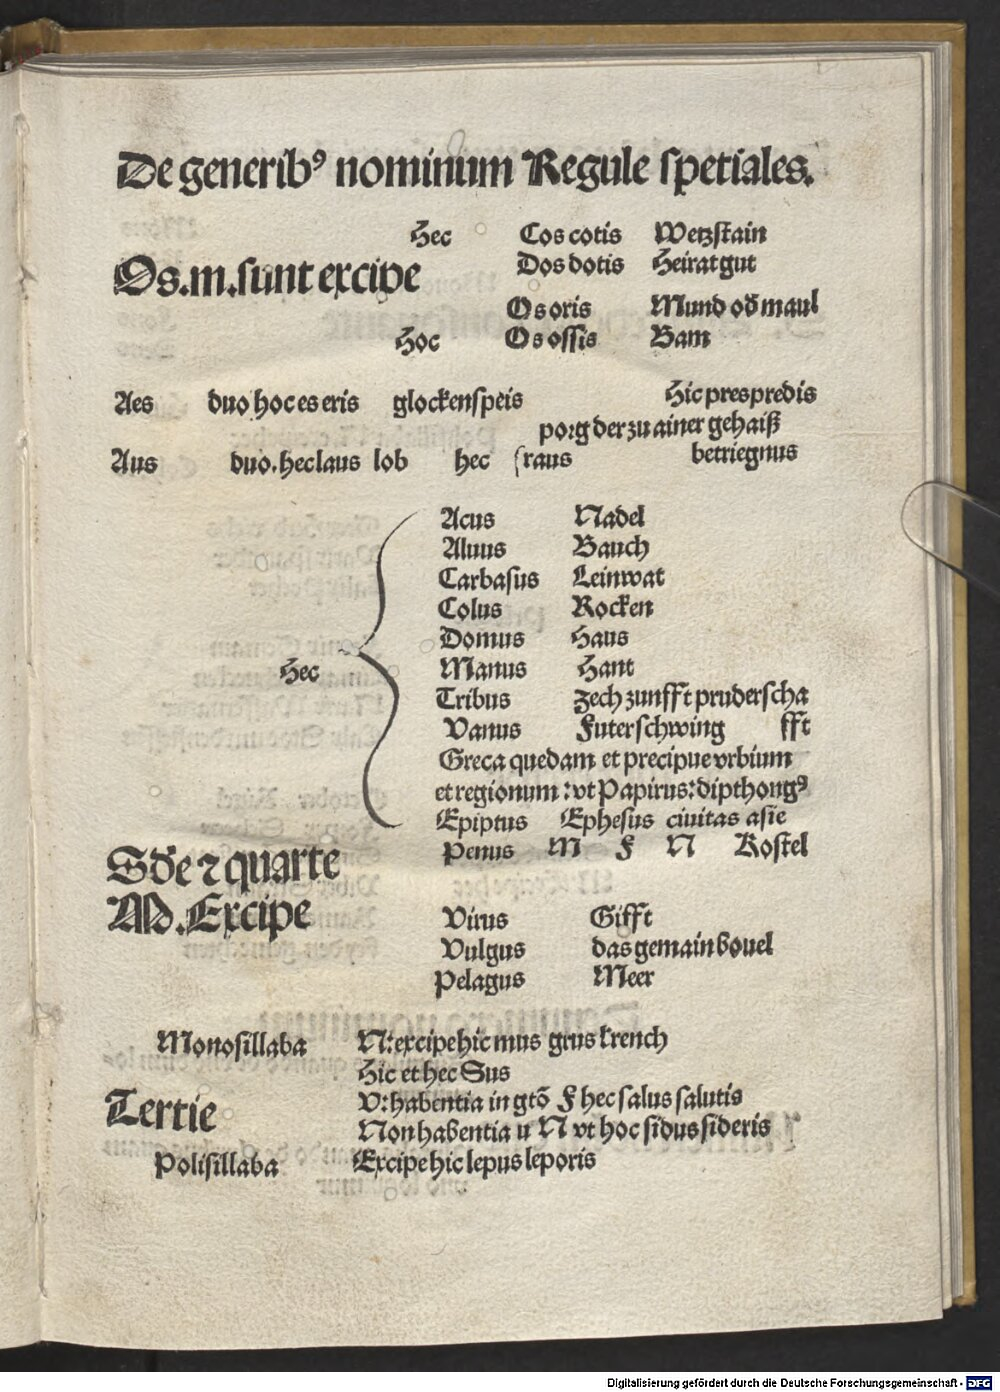 De generibꝰ nominum Regule spetiales.
Hec Cos cotis Wetzstain
Os.m.sunt excipe Dos dotis Heirat gut
Os oris Mund od̛ maul
Hoc Os ossis Bam
Aes duo hoc es eris glockenspeis Hic pres predis
porg der zu ainer gehaiß
Aus duo.hec laus lob hec fraus betriegnus
Acus Nadel
Aluus Bauch
Carbasus Leinwat
Colus Rocken
Domus Haus
Hec Manus Hant
Tribus zech zunfft pruderscha
Vanus Futerschwing fft
Greca quedam et precipue vrbium
et regionum: vt Papirus: dipthongꝰ
Epiptus Ephesus ciuitas asie
Penus M F N Kostel
Sd̛e ⁊ quarte
M.Excipe Virus Gifft
Vulgus das gemain bouel
Pelagus Meer
Monosillaba N: excipe hic mus grus krench
Hic et hec Sus
Tertie V: habentia in gtō F hec salus salutis
Non habentia u N vt hoc sidus sideris
Polisillaba Excipe hic lepus leporis
Digitalisierung gefördert durch die Deutsche Forschungsgemeinschaft - DFG